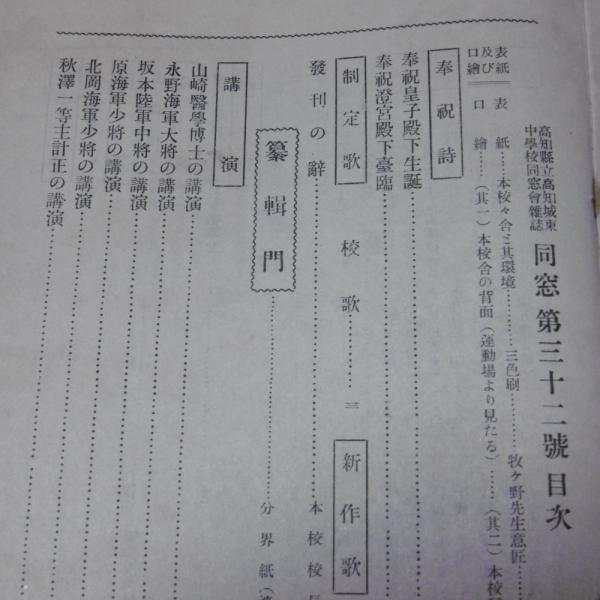 高知縣立高知城東
中學校同窓會雜誌
同窓 第三十二號 目次
表紙
及び
口繪
表紙……本校々舍と其環境………三色刷………牧ヶ野先生意匠
口繪……(其一)本校舍の背面(運動場より見たる)……(其二)本校
奉祝詩
奉祝皇子殿下生誕
奉祝澄宮殿下臺臨
制定歌
校歌…………三
新作歌
發刊の辭…………本校校長
纂輯門
分界紙
講演
山崎醫學博士の講演
永野海軍大將の講演
坂本陸軍中將の講演
原海軍少將の講演
北岡海軍少將の講演
秋澤一等主計正の講演